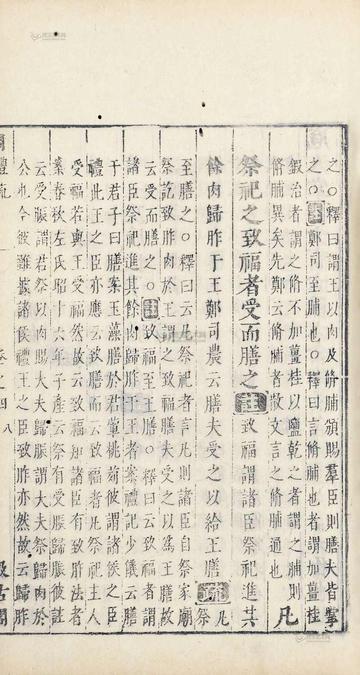 之○釋曰謂王以肉及脩脯頒賜羣臣則膳夫皆掌
之○註鄭司至脯也○釋曰言脩脯也者謂加薑桂
鍛治者謂之脩不加薑桂以鹽乾之者謂之脯則
脩脯異矣先鄭云脩脯者散文言之脩脯通也 凡
祭祀之致福者受而膳之註致福謂諸臣祭祀進其
餘肉歸胙于王鄭司農云膳夫受之以給王膳疏凡祭
至膳之○釋曰云凡祭祀者言凡則諸臣自祭家廟
祭訖致胙肉於王謂之致福膳夫受之以爲王膳故
云受而膳之○註致福至王膳○釋曰云致福者謂
諸臣祭祀進其餘肉歸胙于王者案禮記少儀云膳
于君子曰膳案玉藻膳於君葷桃茢彼謂諸侯之臣
禮此王之臣亦應云致膳而云致福者凡祭祀主人
受福若與王受福然故云致福諸臣有致胙法者
案春秋左氏昭十六年子產云祭有受脤歸脤彼註
云受脤謂君祭以肉賜大夫歸脤謂大夫祭歸肉於
公此今彼雖據諸侯禮王之臣致胙亦然故云歸胙
周禮疏 卷之四 八 汲古閣